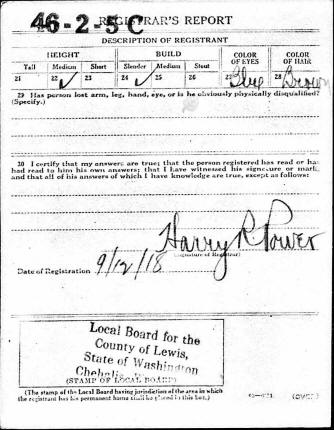 46-2-5 C
REGISTRAR'S REPORT
DESCRIPTION OF REGISTRANT
HEIGHT BUILD COLOR OF EYES COLOR OF HAIR
Tall Medium Short Slender Medium Stout
21 22 ✓ 23 24 ✓ 25 26 27 Blue 28 Brown
29 Has person lost arm, leg, hand, eye, or is he obviously physically disqualified?
(Specify.)
30 I certify that my answers are true; that the person registered has read or has
had read to him his own answers; that I have witnessed his signature or mark,
and that all of his answers of which I have knowledge are true, except as follows:
Harry R Power
(Signature of Registrar)
Date of Registration 9/12/18
Local Board for the
County of Lewis,
State of Washington
Chehalis,
(STAMP OF LOCAL BOARD)
(The stamp of the Local Board having jurisdiction of the area in which
the registrant has his permanent home shall be placed in this box.)
(OVER)